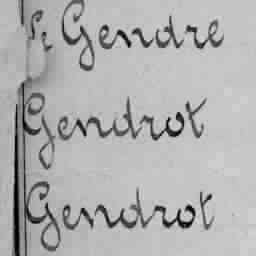 Le Gendre
Gendrot
Gendrot